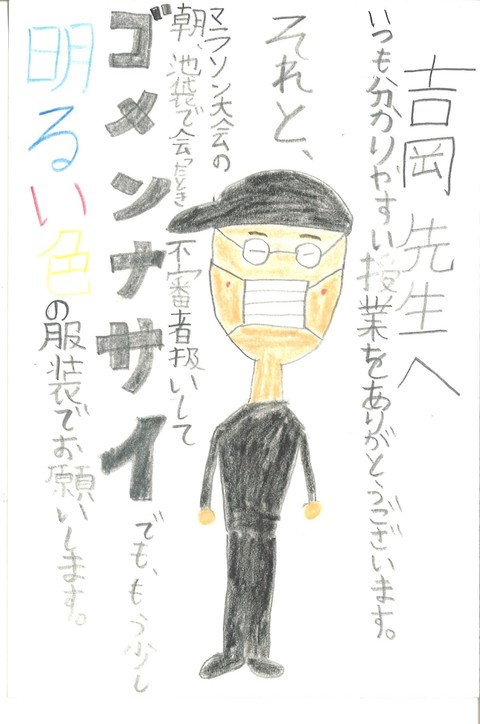 吉岡先生へ
いつも分かりやすい授業をありがとうございます。
それと、
マラソン大会の
朝、池袋で会ったとき
不審者扱いして
ゴメンナサイ
でも、もう少し
明るい色の服装でお願いします。